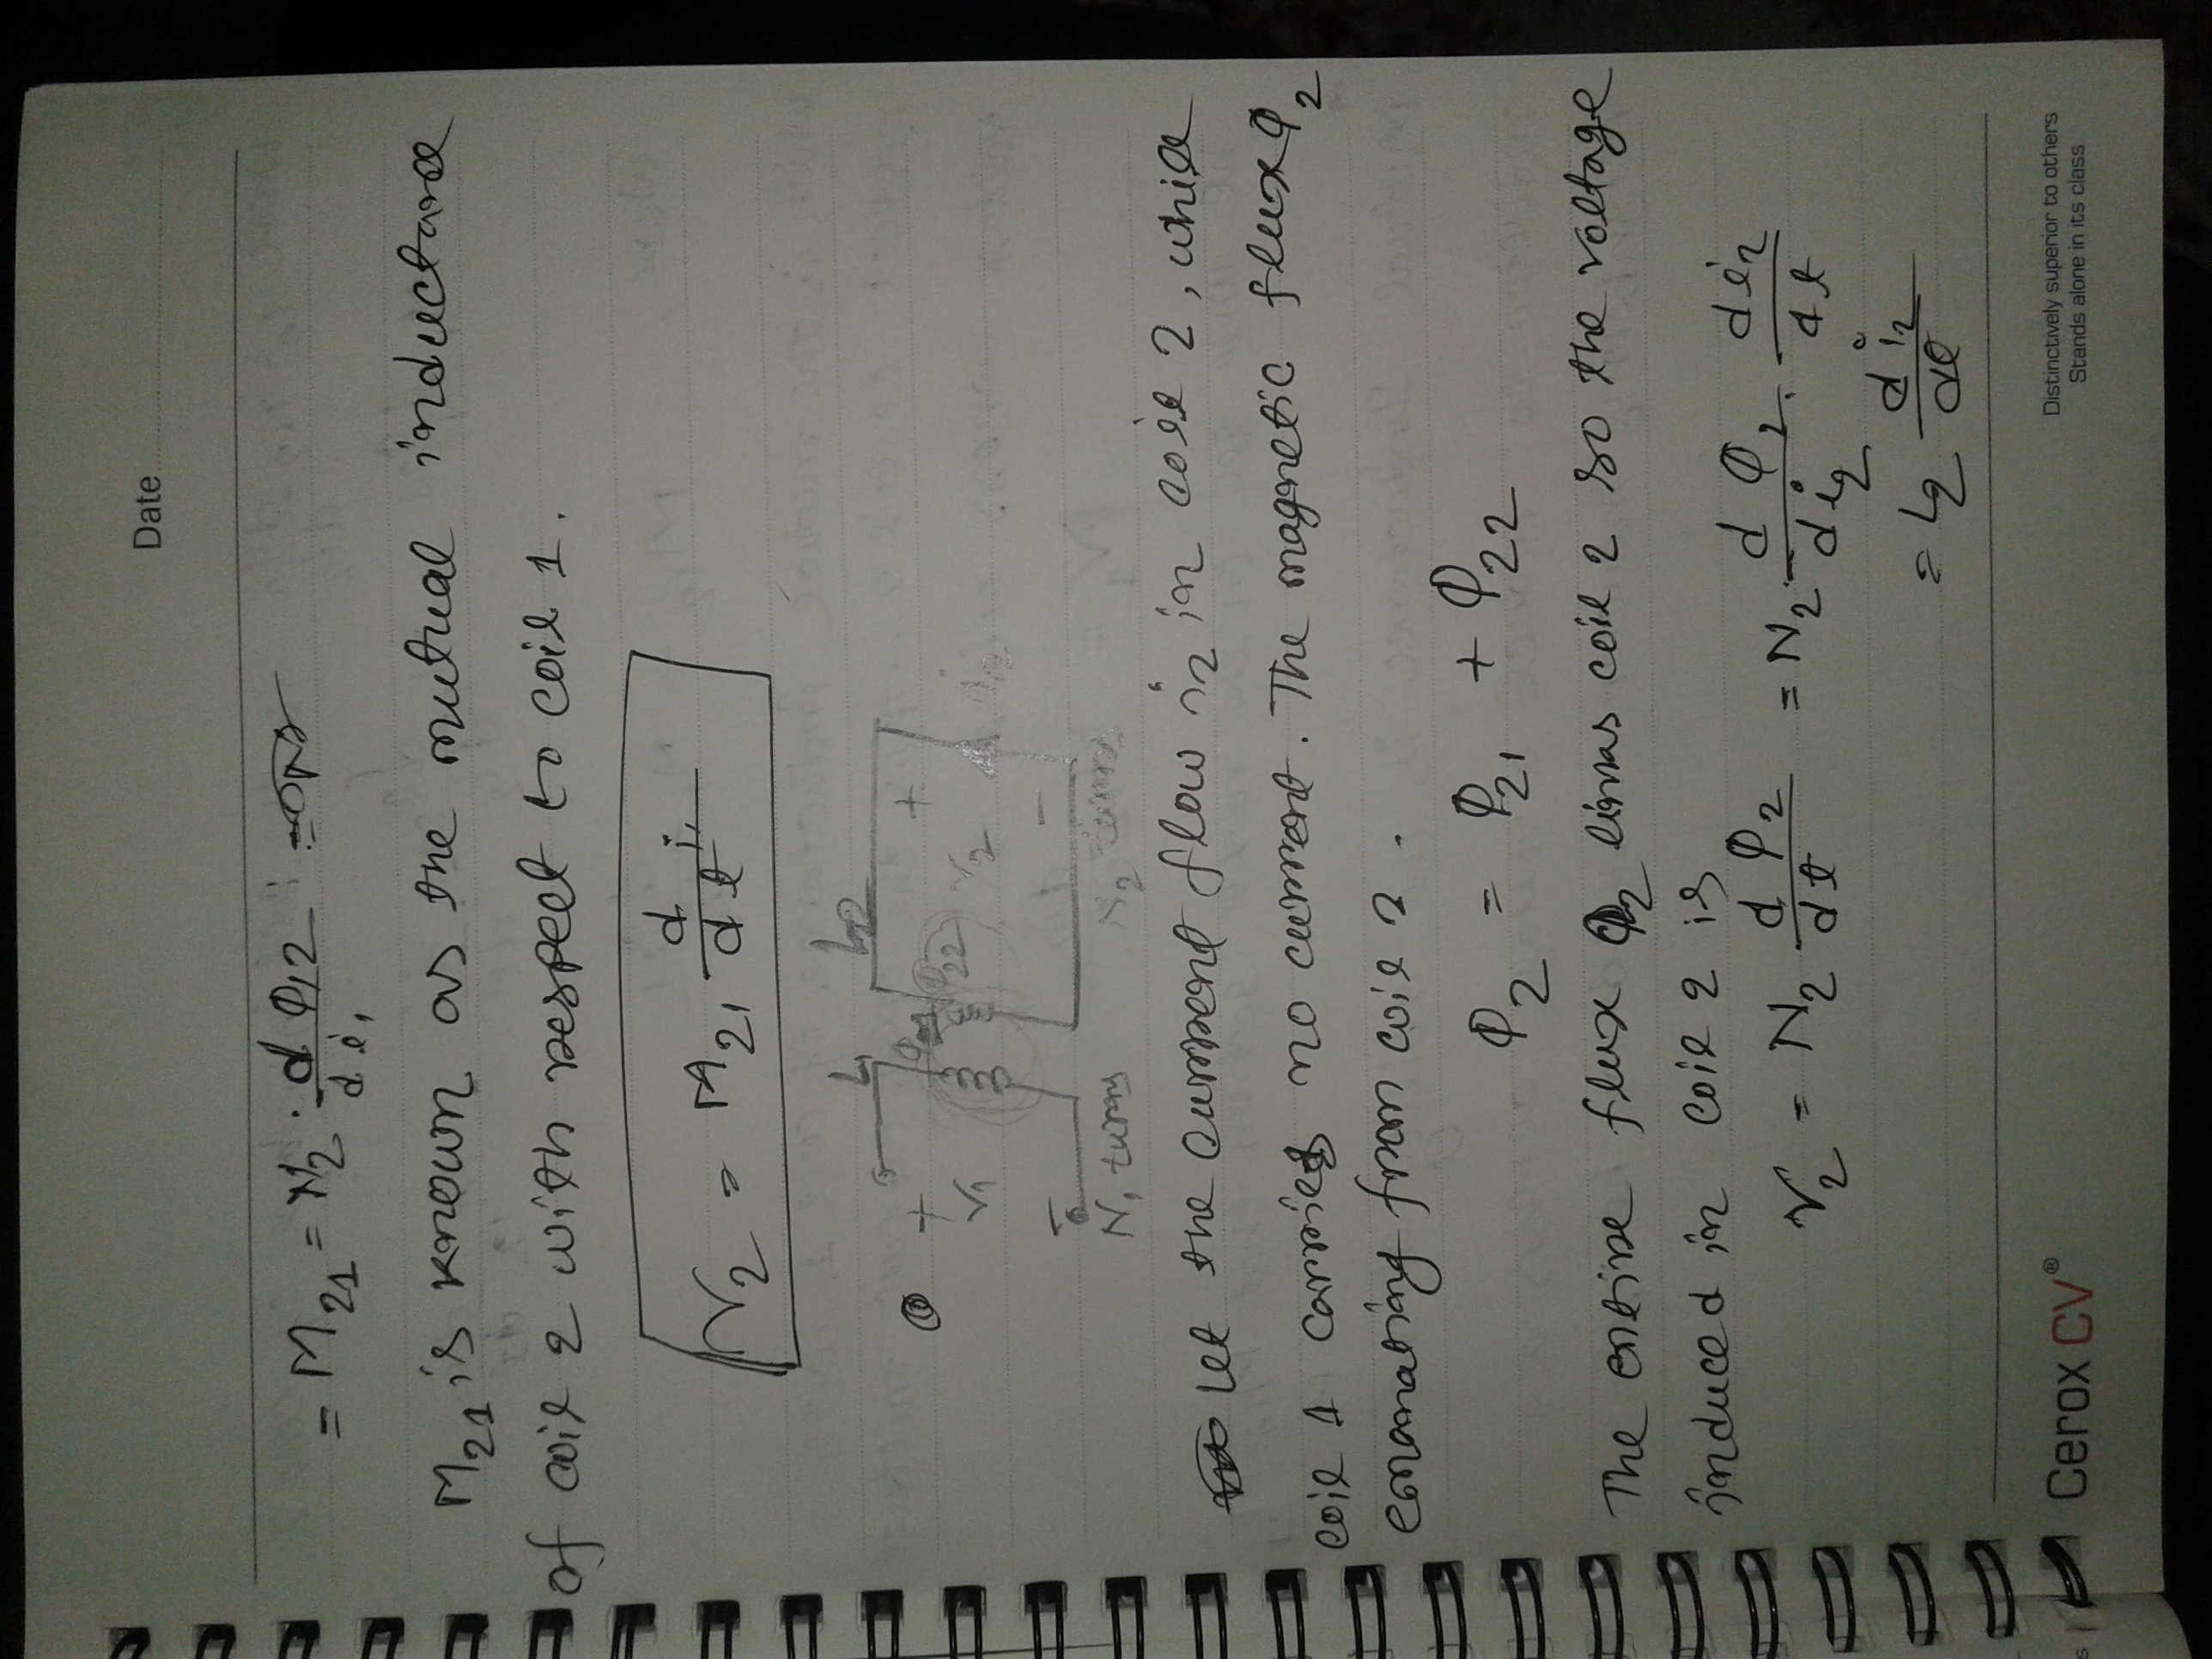 Date
= M21 = N2 · dφ12 / di1
M21 is known as the mutual inductance
of coil 2 with respect to coil 1.
V2 = M21 d i1 / dt
L1 L2
+ φ21 φ22 +
V1 V2 i2
- -
N1 turns N2 turns
Let the current flow i2 in coil 2, while
coil 1 carries no current. The magnetic flux φ2
emanating from coil 2 .
φ2 = φ21 + φ22
The entire flux φ2 links coil 2 so the voltage
induced in coil 2 is
V2 = N2 dφ2 / dt = N2 · dφ2 / di2 · di2 / dt
= L2 di2 / dt
Cerox CV®
Distinctively superior to others
Stands alone in its class